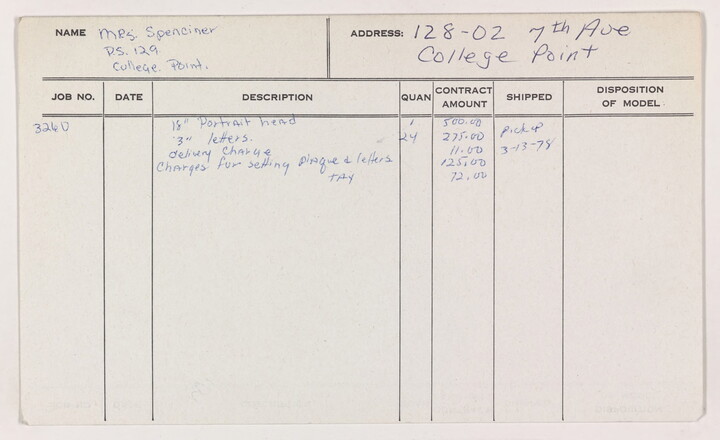 NAME Mrs. Spenciner
P.S. 129
College Point.
ADDRESS: 128-02 7th Ave
College Point
JOB NO. DATE DESCRIPTION QUAN CONTRACT AMOUNT SHIPPED DISPOSITION OF MODEL
3260 18" Portrait head 1 500.00 Pick up
3" letters. 24 275.00 3-13-78
delivery Charge 11.00
Charges for setting plaque & letters 125.00
TAX 72.00